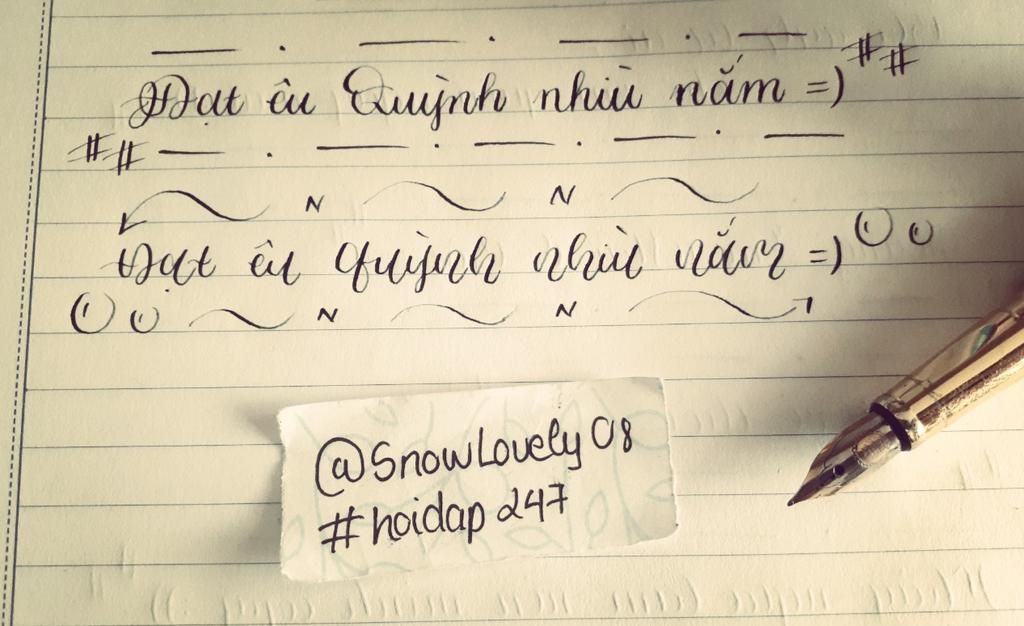 Đạt êu Quỳnh nhìu nắm =) ##
##
Đạt êu Quỳnh nhìu nắm =)
@SnowLovely08
#hoidap247